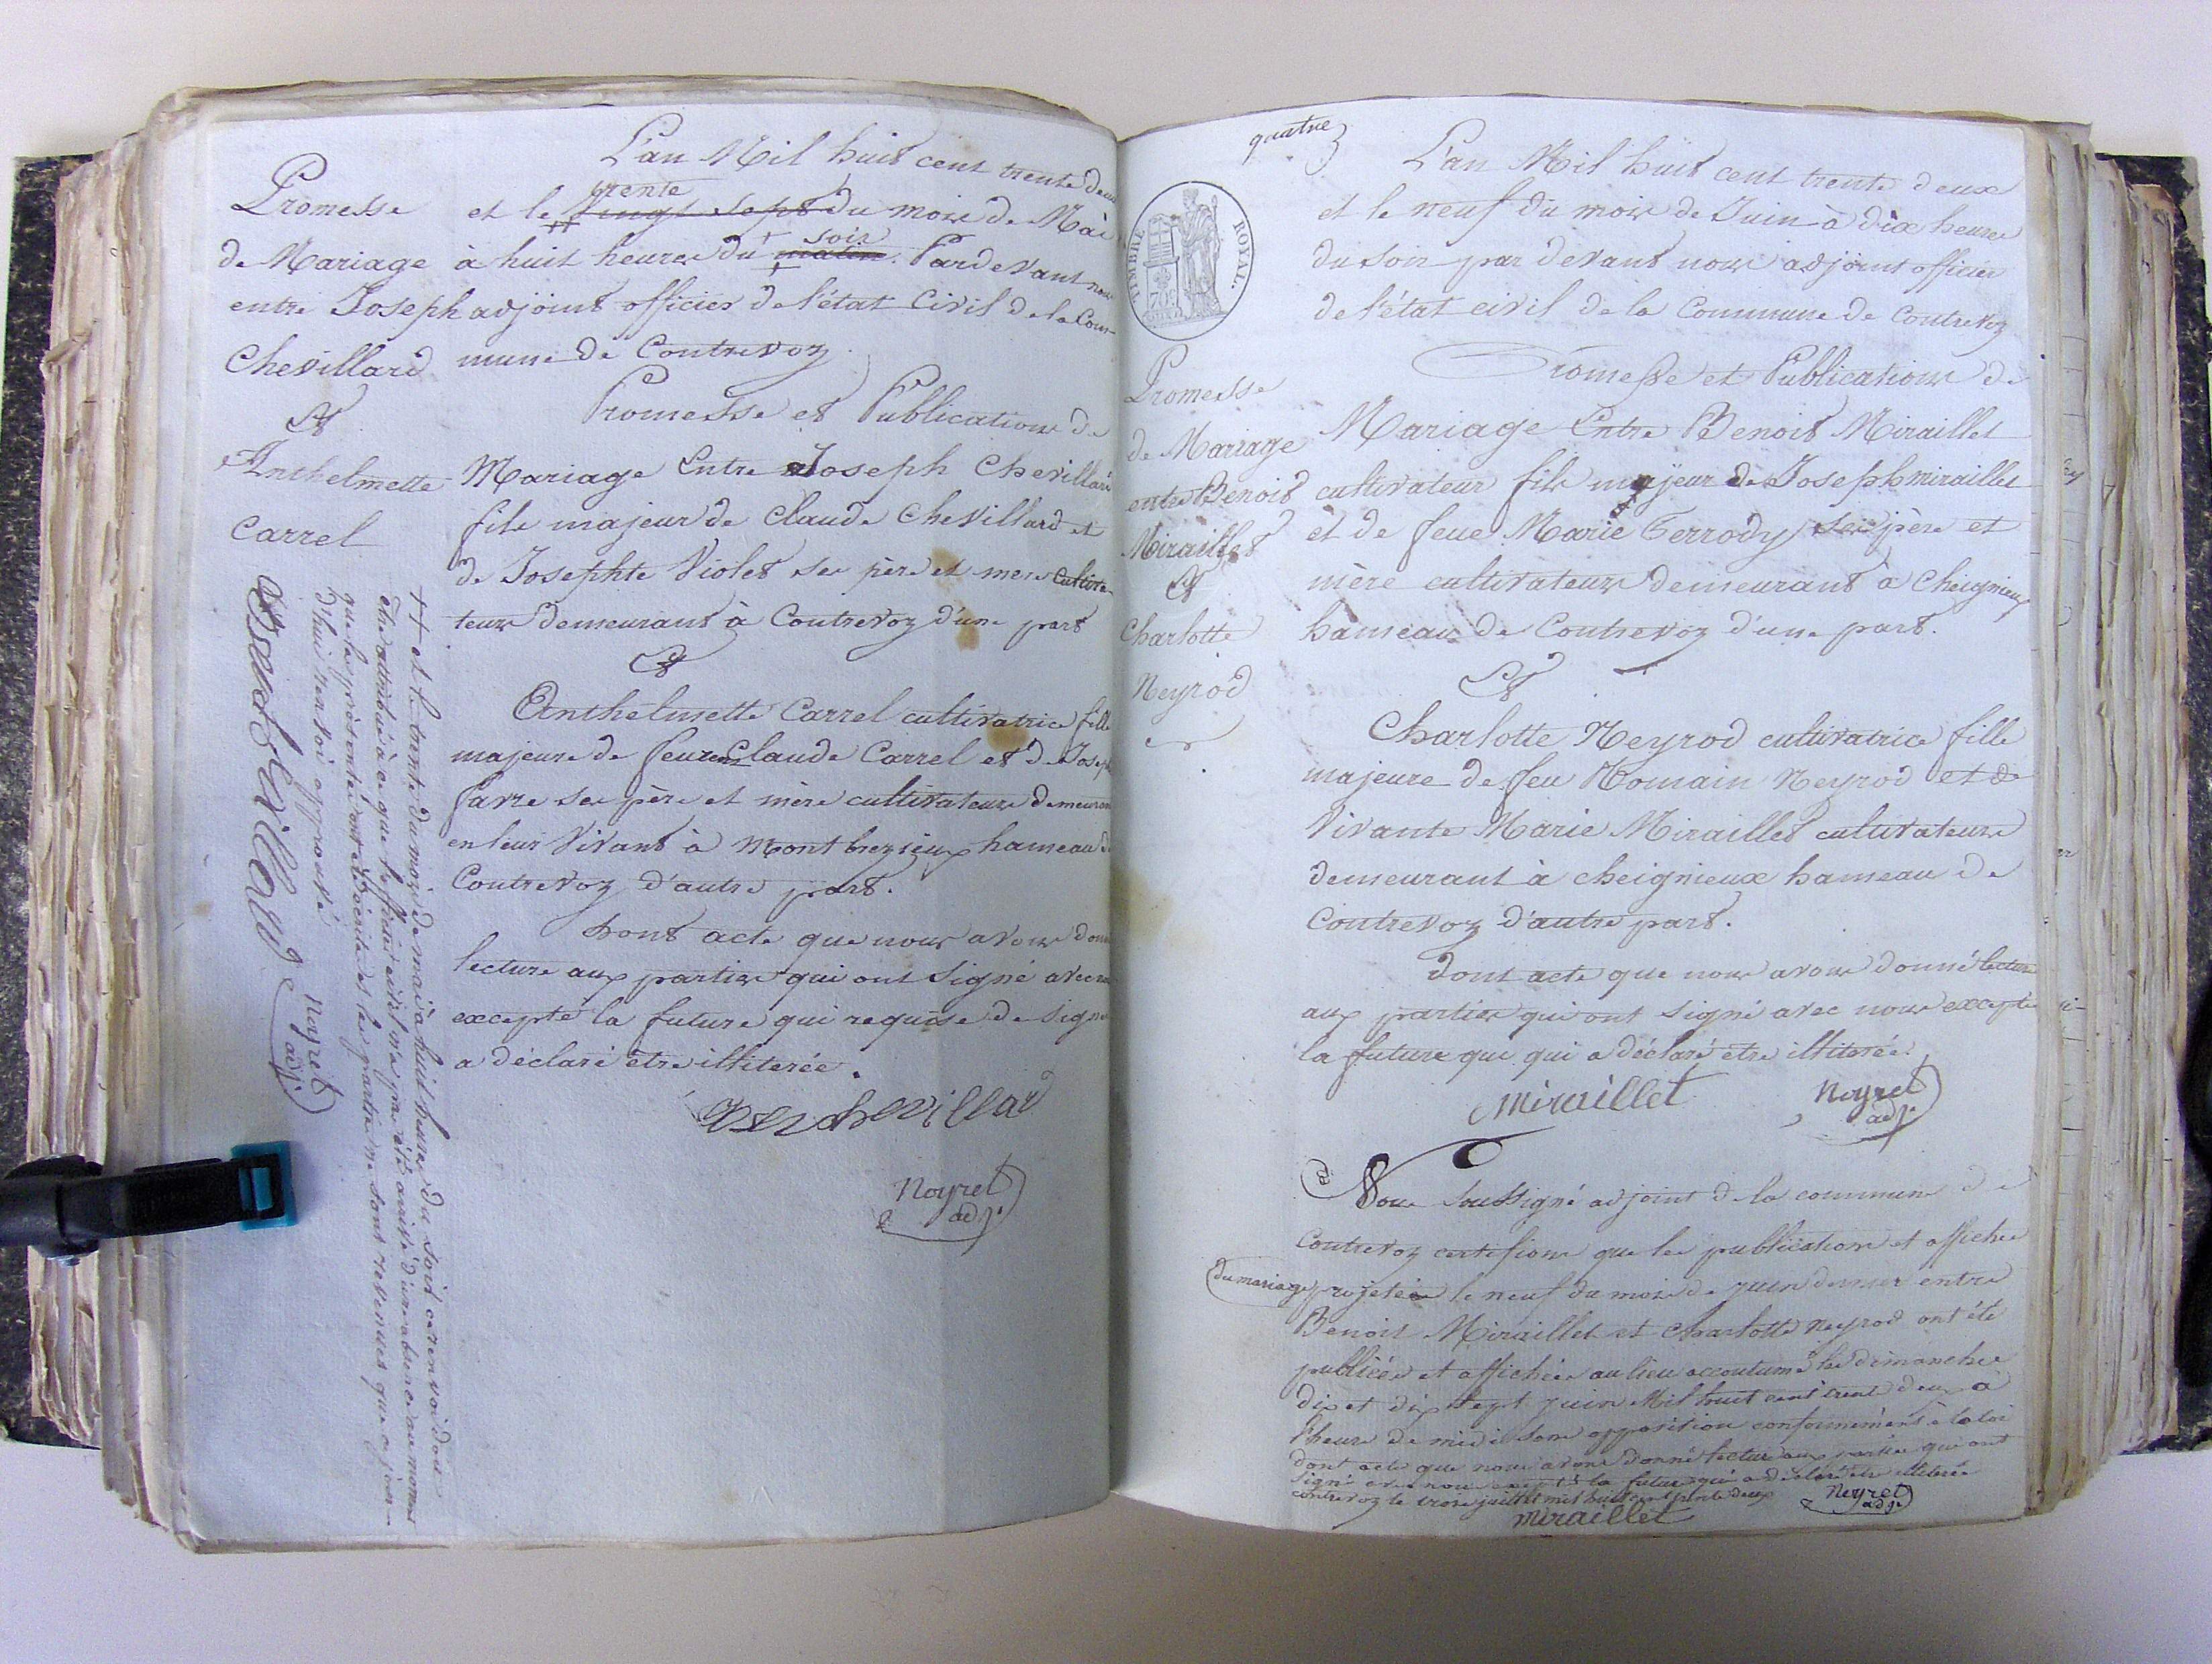 Promesse
de Mariage
entre Joseph
Chevillard
Et
Anthelmette
Carrel
L'an Mil huit cent trente deux
trente
et le vingt sept du mois de Mai
soir
à huit heures du matin. Pardevant nous
adjoint officier de l'état Civil de la Com-
mune de Contrevoz
Promesse et Publications de
Mariage Entre Joseph Chevillard
fils majeur de Claude Chevillard et
de Josephte Violet ses père et mère cultiva-
teurs demeurant à Contrevoz d'une part
Et
Anthelmette Carrel cultivatrice fille
majeure de feu Claude Carrel et de Joseph
favre ses père et mère cultivateurs demeurant
en leur Vivant à Montbreyzieux hameau de
Contrevoz d'autre part.
Dont acte que nous avons donné
lecture aux parties qui ont Signé avec nous
excepté la future qui requise de Signer
a déclaré être illiterée.
chevillard
Neyret
adj.
++ et le trente du mois de mai à huit heures du soir ce renvoi doit
être attribué à ce que l'officier civil n'a pas été avisé d'une absence au moment
que la présente était écrite et les parties ne sont revenues que aujour-
d'hui renvoi approuvé
Neyret
adj.
Chevillard
quatre
TIMBRE ROYAL.
70c
Promesse
de Mariage
entre Benoit
Miraillet
Et
Charlotte
Neyrod
L'an Mil huit cent trente deux
et le neuf du mois de Juin à dix heures
du soir par devant nous adjoint officier
de l'état civil de la Commune de Contrevoz
Promesse et Publications de
Mariage Entre Benoit Miraillet
cultivateur fils majeur de Joseph miraillet
et de feue Marie Terrody ses père et
mère cultivateurs demeurant à Cheignieux
hameau de Contrevoz d'une part.
Et
Charlotte Neyrod cultivatrice fille
majeure de feu Romain Neyrod et de
Vivante Marie Miraillet cultivateurs
demeurant à cheignieux hameau de
Contrevoz d'autre part.
Dont acte que nous avons donné lecture
aux parties qui ont signé avec nous excepté
la future qui qui a déclaré être illiterée.
miraillet
Neyret
adj.
Nous Soussigné adjoint de la commune de
Contrevoz certifions que les publications et affiches
du mariage projeté le neuf du mois de juin dernier entre
Benoit Miraillet et Charlotte Neyrod ont été
publiées et affichées au lieu accoutumé les dimanches
dix et dix sept juin Mil huit cent trente deux à
l'heure de midi sans opposition conformément à la loi
dont acte que nous avons donné lecture aux parties qui ont
signé avec nous excepté la future qui a déclaré être illiterée
contrevoz le trois juillet mil huit cent trente deux
Neyret
adj.
miraillet